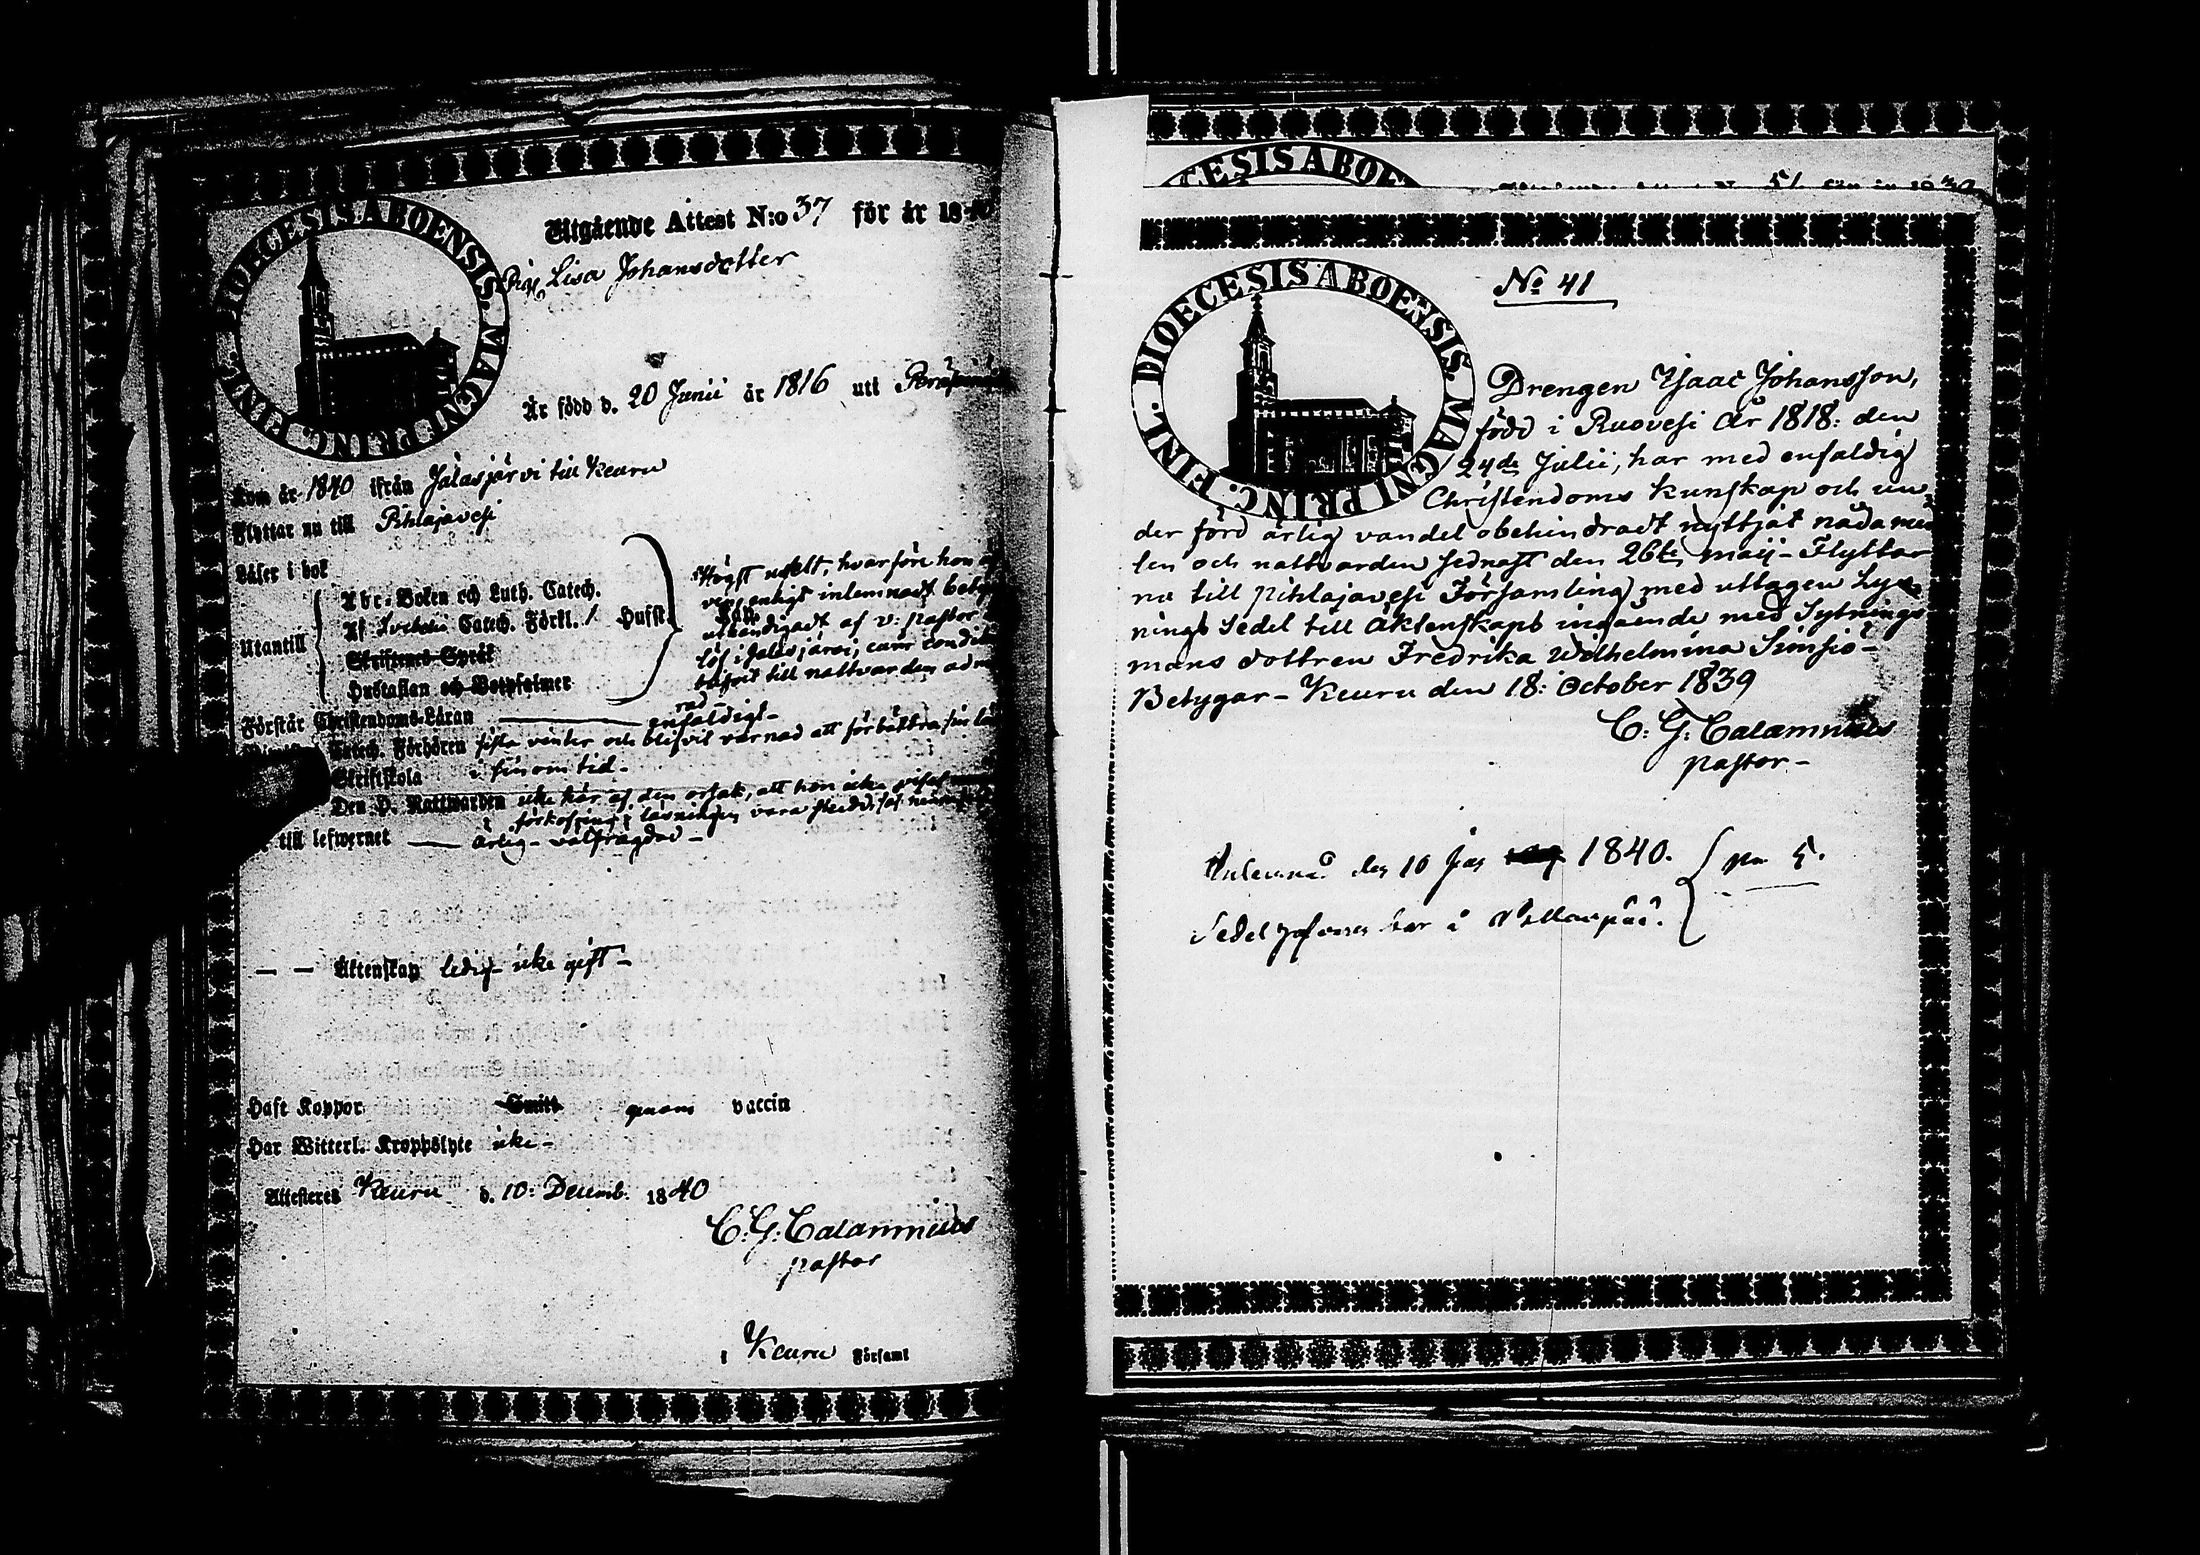 DIOECESIS ABOENSIS. MAGNI PRINC. FINL.
Utgående Attest N:o 37 för år 1840
Pig. Lisa Johansdotter
Är född d. 20 Junii år 1816 uti
Kom år 1840 ifrån Jalasjärvi till Keuru
Flyttar nu till Pihlajavesi
Läser i bok
Utantill
A b c-Boken och Luth. Catech.
Af Svebelii Catech. Förkl. /. Hufst.
Skriftenes Språk
Hustaflan och Botpsalmer
Högst uselt, hvarföre hon
enligt inlemnadt
af v: pastor
löf i Jalasjärvi,
till nattvarden
Förstår Christendoms-Läran — enfaldigt-
Catech. Förhören sista vinter och blifvit varnad att förbättra sin
Skriftskola i sinom tid-
Den H. Nattvarden icke här af den orsak, att hon icke
förkofring i läsningen vara skedd,
till lefwernet — ärlig- välfrägdad-
— — Äktenskap ledig- icke gift-
Haft Koppor Smitt genom vaccin
Har Witterl. Kroppslyte icke-
Attesteras Keuru d. 10: Decemb. 1840
C: G: Calamnius
pastor
i Keuru Församl
CESIS ABOE
51
DIOECESIS ABOENSIS. MAGNI PRINC. FINL.
No 41
Drengen Ysaac Johansson,
född i Ruovesi år 1818: den
24de Julii, har med enfaldig
Christendoms kunskap och un-
der förd ärlig vandel obehindradt nyttjat nådamed
len och nattvarden sednast den 26te maij- Flyttar
nu till Pihlajavesi Församling med uttagen Lys-
nings sedel till Äktenskaps ingående med Sytnings
mans dottren Fredrika Wilhelmina Simsiö-
Betygar- Keuru den 18: October 1839
C: G: Calamnius
pastor-
den 10 1840. No 5.
Sedel